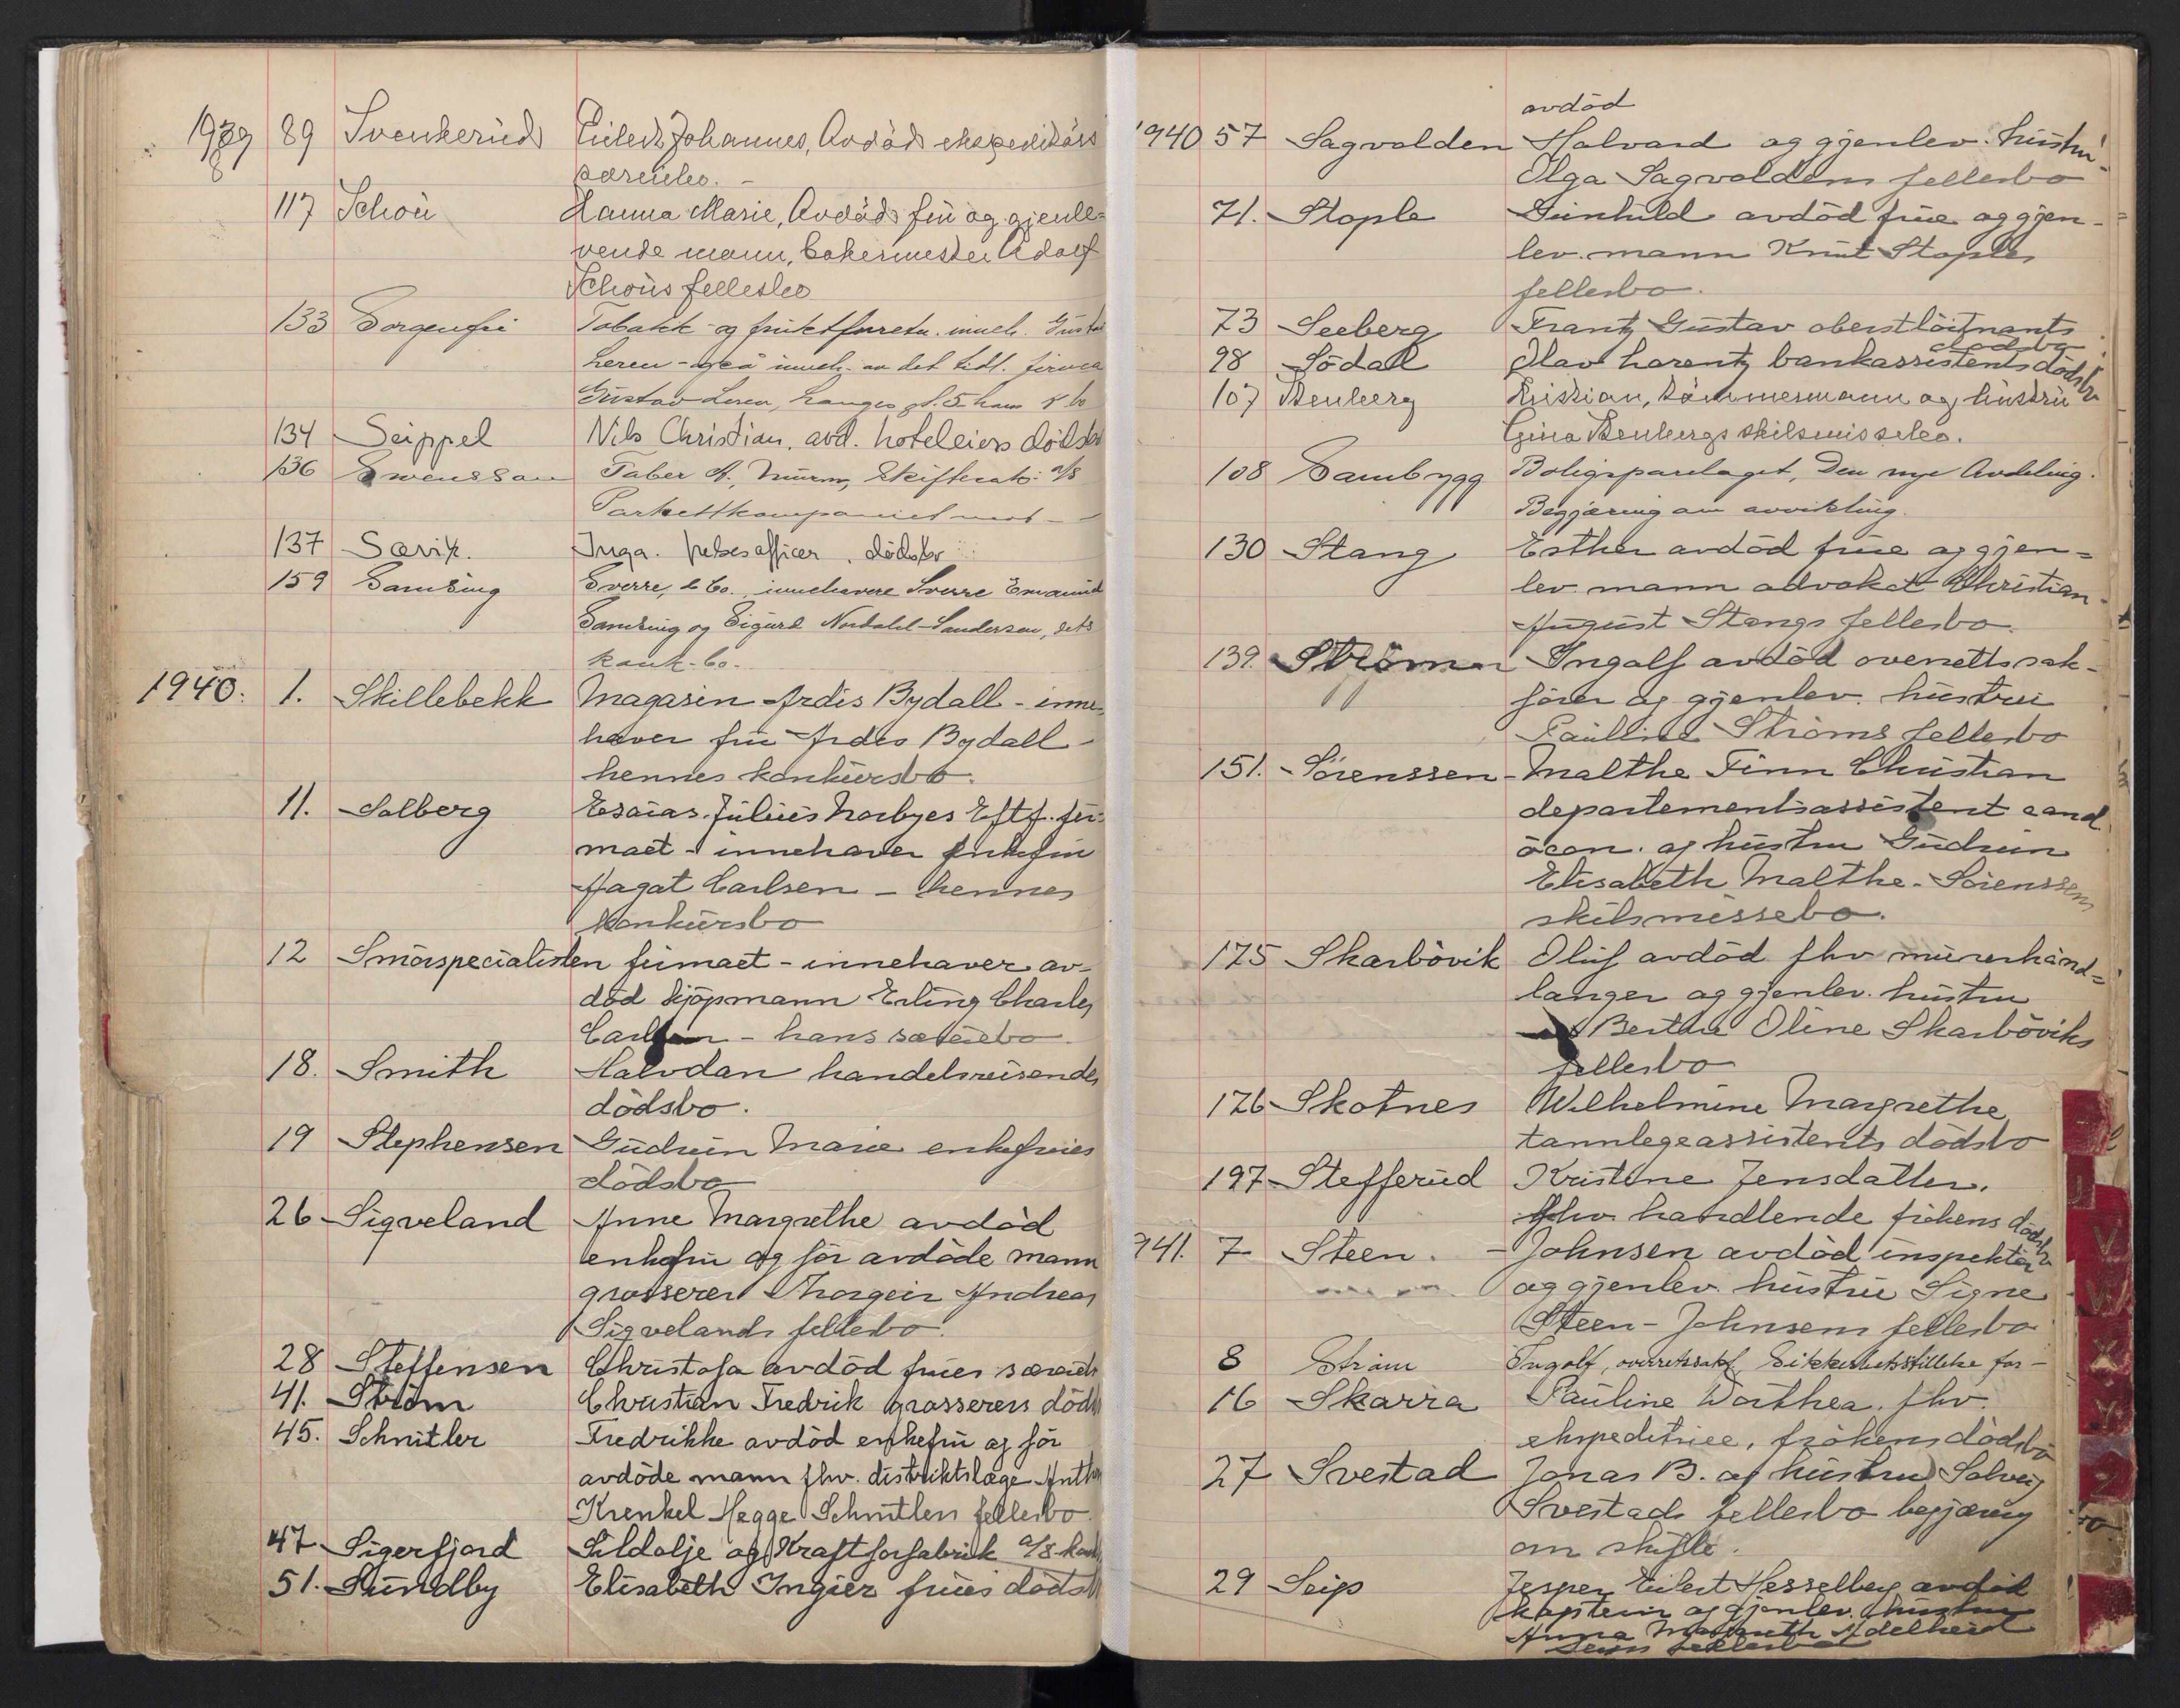 1939 89 Svenkerud Eilert Johannes, Avdød ekspeditørs
særeiebo. -
117 Schou Hanna Marie, Avdøde fru og gjenle-
vende mann, bakermester Adolf
Schou's fellesbo
133 Sorgenfri Tobakk- og fruktforretn. inneh. Gustav
Leren - også inneh. av det tidl. firma
Gustav Leren, Langes gt. 5 hans k.bo
134 Seippel Nils Christian, avd. hoteleiers dødsbo
136 Swensson Faber A.,
Parkettkompaniet mot -
137 Særik. Inga. dødsbo
159 Samsing Sverre, & Co., innehavere Sverre Emanuel
Samsing og Sigurd Nordahl-Sandersen, dets
konk-bo.
1940. 1. Skillebekk Magasin Ardis Bydall - inne-
haver fru Ardis Bydall -
hennes konkursbo.
11. Solberg Esaias Julius Norbyes Eftf. fir-
maet - innehaver enkefru
Aagot Carlsen - hennes
konkursbo
12 Smørspecialisten firmaet - innehaver av-
død kjøpmann Erling Charles
Carlsen - hans særeiebo
18. Smith Halvdan handelsreisendes
dødsbo.
19 Stephensen Gudrun Marie enkefrues
dødsbo
26 Sigveland Anne Margrethe avdød
enkefru og før avdøde mann
grosserer Thorgeir Andreas
Sigvelands fellesbo.
28 Steffensen Christofa avdød frues særeiebo
41. Strøm Christian Fredrik grosserers døds
45. Schnitler Fredrikke avdød enkefru og før
avdøde mann fhv. distriktslæge Anthon
Krenkel Hegge Schnitlers fellesbo
47 Sigerfjord Sildolje og Kraftforfabrik A/S konk
51. Sundby Elisabeth Ingier frues dødsb
avdød
1940 57 Sagvolden Halvard og gjenlev. hustru
Olga Sagvoldens fellesbo
71. Stople Gunhild avdød frue og gjen-
lev. mann Knut Stoples
fellesbo.
73 Seeberg Frantz Gustav oberstløitnants
dødsbo
98 Södal Olav Lorentz bankassistents dødsbo
107 Stenberg Kristian, tømmermann og hustru
Gina Stenbergs skilsmissebo.
108 Sambygg Boligsparelaget, Den nye Avdeling.
Begjæring om avvikling.
130 Stang Esther avdød frue og gjen-
lev. mann advokat Christian
August Stangs fellesbo.
139. Strøm Ingolf avdød overrettssak-
fører og gjenlev. hustru
Pauline Strøms fellesbo
151. Sörenssen - Malthe Finn Christian
departementsassistent cand.
öcon. og hustru Gudrun
Elisabeth Malthe-Sörenssens
skilsmissebo.
175 Skarbövik Oluf avdød fhv murerhånd-
langer og gjenlev. hustru
Berthe Oline Skarböviks
fellesbo
176 Skotnes Wilhelmine Margrethe
tannlegeassistents dødsbo
197 Stefferud Kristine Jensdatter,
fhv. handlende frökens dødsbo
941. 7 Steen - Johnsen avdød inspektör
og gjenlev. hustru Signe
Steen-Johnsens fellesbo
8 Strøm Ingolf, overretssakf. Sikkerhetsstillelse for -
16 Skarra Pauline Dorthea, fhv.
ekspeditrice, frökens dødsbo
27 Svestad Jonas B. og hustru Solveig
Svestads fellesbo begjæring
om skifte.
29 Seip Jesper Eilert Hesselberg avdød
kaptein og gjenlev. hustru
Anna Margreth Adelheid
Seips fellesbo
V
W
X
Y